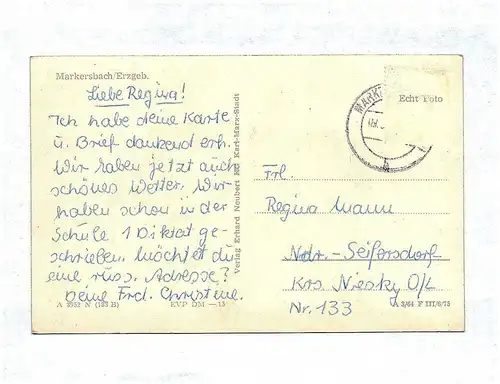 Markersbach/Erzgeb.
Liebe Regina!
Ich habe deine Karte
u. Brief dankend erh.
Wir haben jetzt auch
schönes Wetter. Wir
haben schon in der
Schule 1 Diktat ge-
schrieben. Möchtest du
eine russ. Adresse?
Deine Frd. Christine.
A 2952 N (123 B)
EVP DM —15
Verlag Erhard Neubert KG Karl-Marx-Stadt
MARK
Echt Foto
Frl.
Regina Mann
Ndr.-Seifersdorf
Krs Niesky O/L
Nr. 133
3/64 F III/6/75